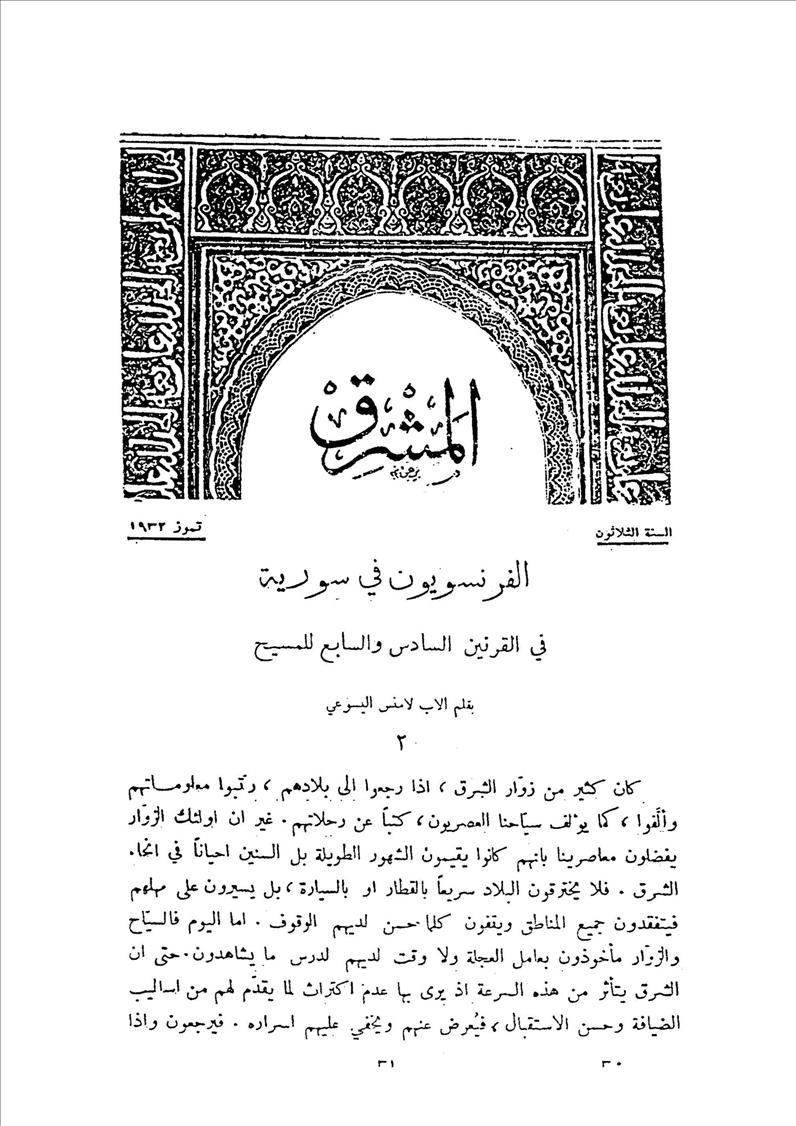 المشرق
السنة الثلاثون
تموز ١٩٣٢
الفرنسويون في سورية
في القرنين السادس والسابع للمسيح
بقلم الاب لامنس اليسوعي
٢
كان كثير من زوّار الشرق ، اذا رجعوا الى بلادهم ، رتّبوا معلوماتهم
وألَّفوا ، كما يؤلف سيّاحنا العصريون ، كتباً عن رحلاتهم . غير ان اولئك الزوّار
يفضلون معاصرينا بانهم كانوا يقيمون الشهور الطويلة بل السنين احياناً في انحاء
الشرق . فلا يخترقون البلاد سريعاً بالقطار او بالسيارة ، بل يسيرون على مهلهم
فيتفقدون جميع المناطق ويقفون كلما حسن لديهم الوقوف . اما اليوم فالسيّاح
والزوّار مأخوذون بعامل العجلة ولا وقت لديهم لدرس ما يشاهدون . حتى ان
الشرق يتأثر من هذه السرعة اذ يرى بها عدم اكتراث لما يقدَّم لهم من اساليب
الضيافة وحسن الاستقبال ، فيُعرض عنهم ويخفي عليهم اسراره . فيرجعون واذا
٣٠
٣١